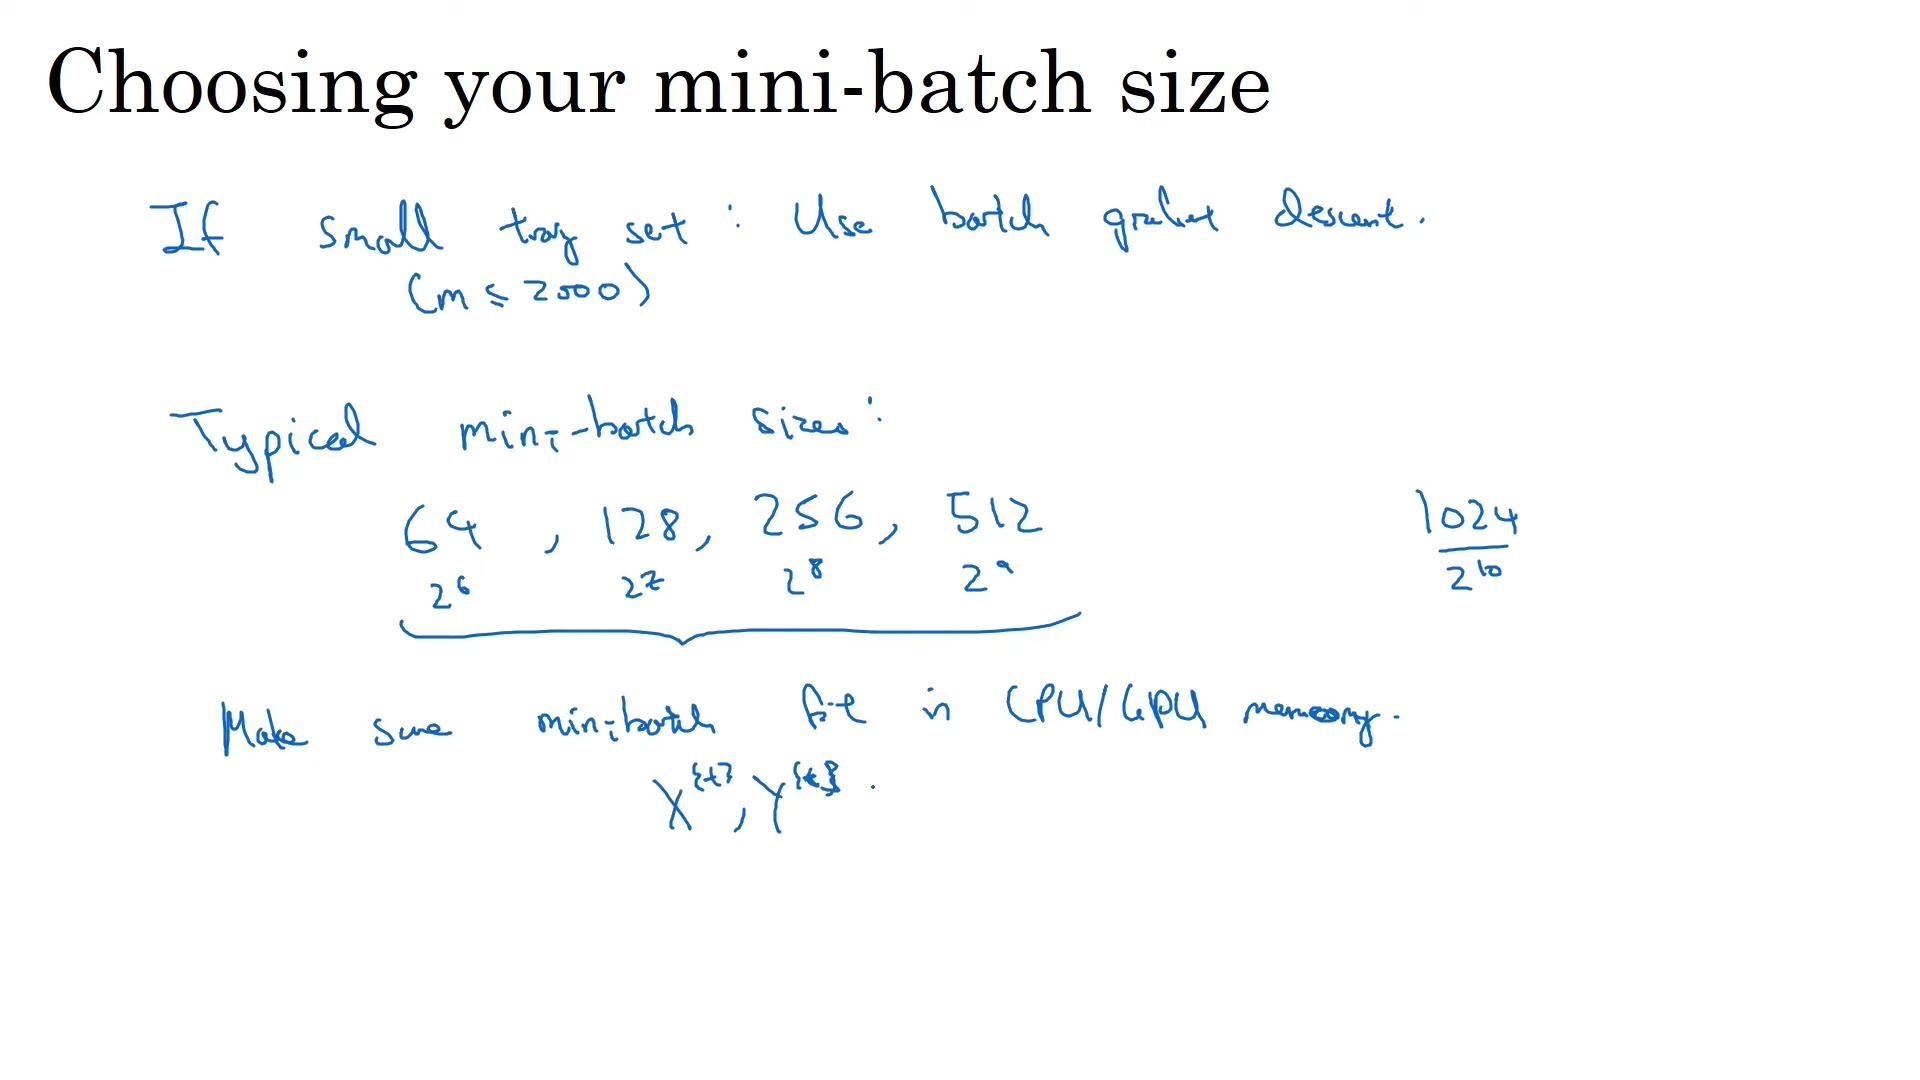 Choosing your mini-batch size
If small trag set : Use batch gradient descent.
(m ≤ 2000)
Typical mini-batch sizes:
64 , 128, 256, 512 1024
2^6 2^7 2^8 2^9 2^10
Make sure minibatch fit in CPU/GPU memory.
X^{t}, Y^{t} .